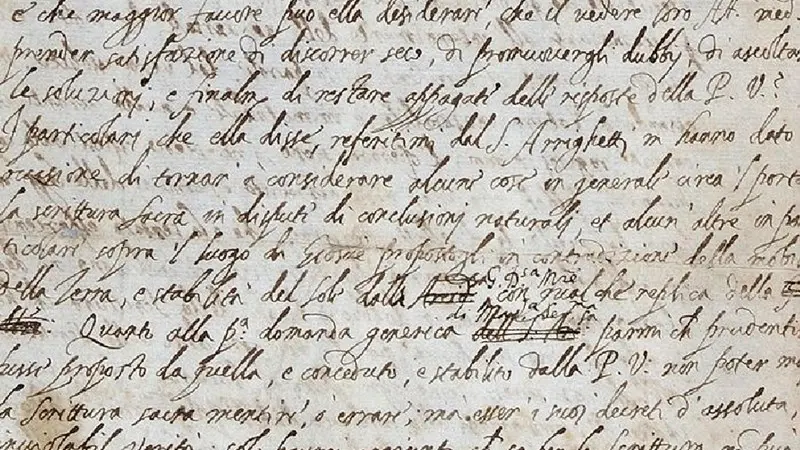 e che maggior favore può ella desiderare, che il vedere loro Alt. med
prender satisfazione di discorrer seco, di promuovergli dubbj, di ascoltar
le soluzioni, e finalm. di restare appagate delle risposte della P. V.?
I particolari che ella disse, referitimi dal S. Arrighetti m'hanno dato
occasione di tornare à considerare alcune cose in generale circa 'l porta
la scrittura sacra in dispute di conclusioni naturali, et alcun'altre in par
ticolare sopra 'l luogo di Giosuè propostogli in contradizione della mobil
G. D.sa Mre
della Terra, e stabilità del Sole dalla con qualche replica della
Quanto alla pa. domanda generica parmi ch' prudenti
fusse proposto da quella, e conceduto, e stabilito dalla P. V. non poter ma
la Scrittura sacra mentire, o errare; ma esser i suoi decreti d'assoluta,